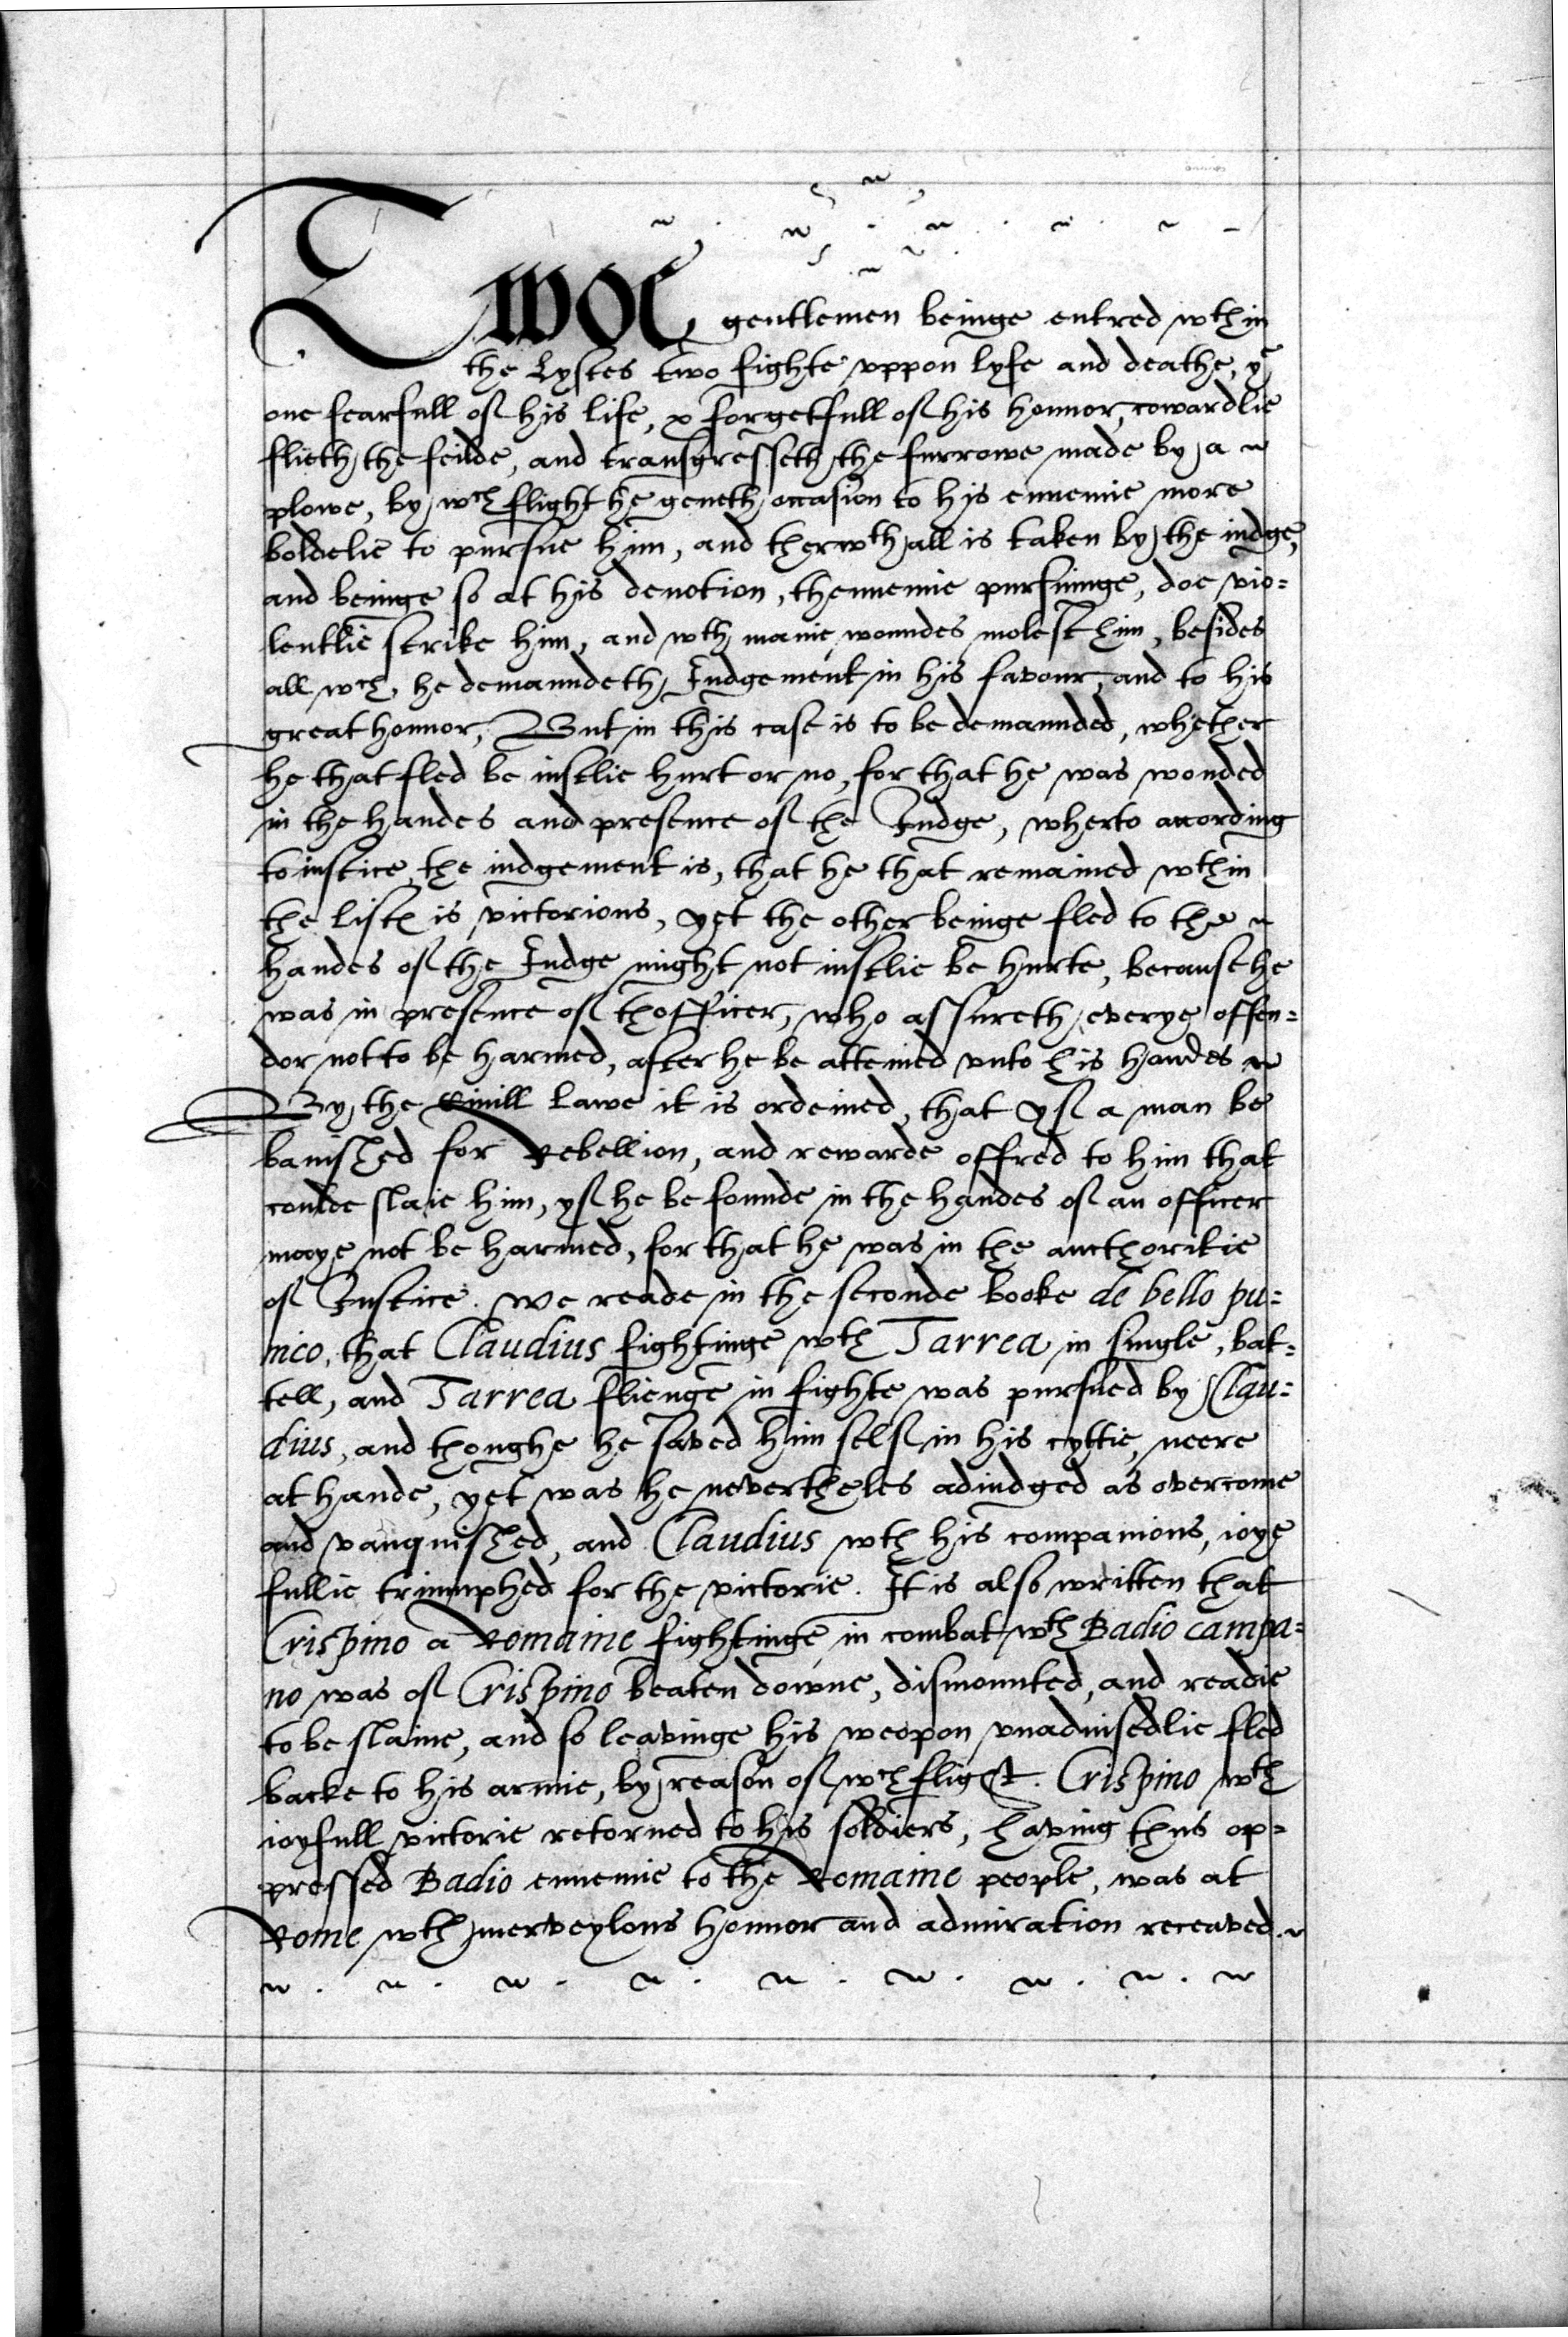 Twoe gentlemen beinge entred wthin
the Lystes two fighte vppon lyfe and deathe, ye
one fearfull of his life, & forgetfull of his honnor, cowardlie
flieth the feilde, and transgresseth the furrowe made by a
plowe, by wch flight he geueth occasion to his ennemie more
boldelie to pursue him, and therwthall is taken by the iudge,
and beinge so at his deuotion, thennemie pursuinge, doe vio=
lentlie strike him, and wth manie woundes molest him, besides
all wch, he demaundeth Iudgement in his favour, and to his
great honnor, But in this case is to be demaunded, whether
he that fled be iustlie hurt or no, for that he was wonded
in the handes and presence of the Iudge, wherto according
to iustice the iudgement is, that he that remained wthin
the listh is victorious, yet the other beinge fled to the
handes of the Iudge might not iustlie be hurte, because he
was in presence of thofficer, who assureth everye offen=
dor not to be harmed, after he be atteined vnto his handes
By the Ciuill Lawe it is ordeined, that yf a man be
banished for Rebellion, and rewarde offred to him that
coulde slaie him, yf he be founde in the handes of an officer
maye not be harmed, for that he was in the aucthoritie
of Iustice. We reade in the seconde booke de bello pu=
nico, that Claudius fightinge wth Tarrea in single bat=
tell, and Tarrea flienge in fighte was pursued by Clau=
dius, and thoughe he saved him self in his cyttie, neere
at hande, yet was he nevertheles adiudged as overcome
and vanquished, and Claudius wth his companions, ioye
fullie triumphed for the victorie. It is also written that
Crispino a Romaine fightinge in combat wth Badio campa=
no was of Crispino beaten downe, dismounted, and readie
to be slaine, and so leavinge his weopon vnaduisedlie fled
backe to his armie, by reason of wch flight. Crispino wth
ioyfull victorie retorned to his soldiers, having thus op=
pressed Badio ennemie to the Romaine people, was at
Rome wth merveylous honnor and admiration receaved.